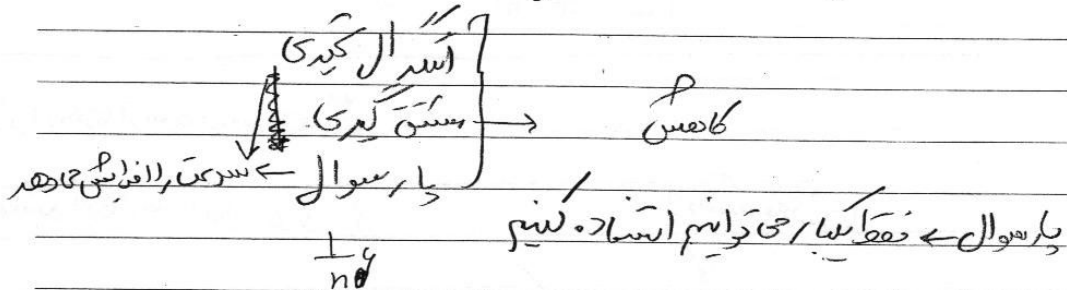 انتگرال گیری
مشتق گیری → کاهش
پارسوال ← سرعت را افزایش می دهد
پارسوال ← فقط یکبار می توانیم استفاده کنیم
1/n